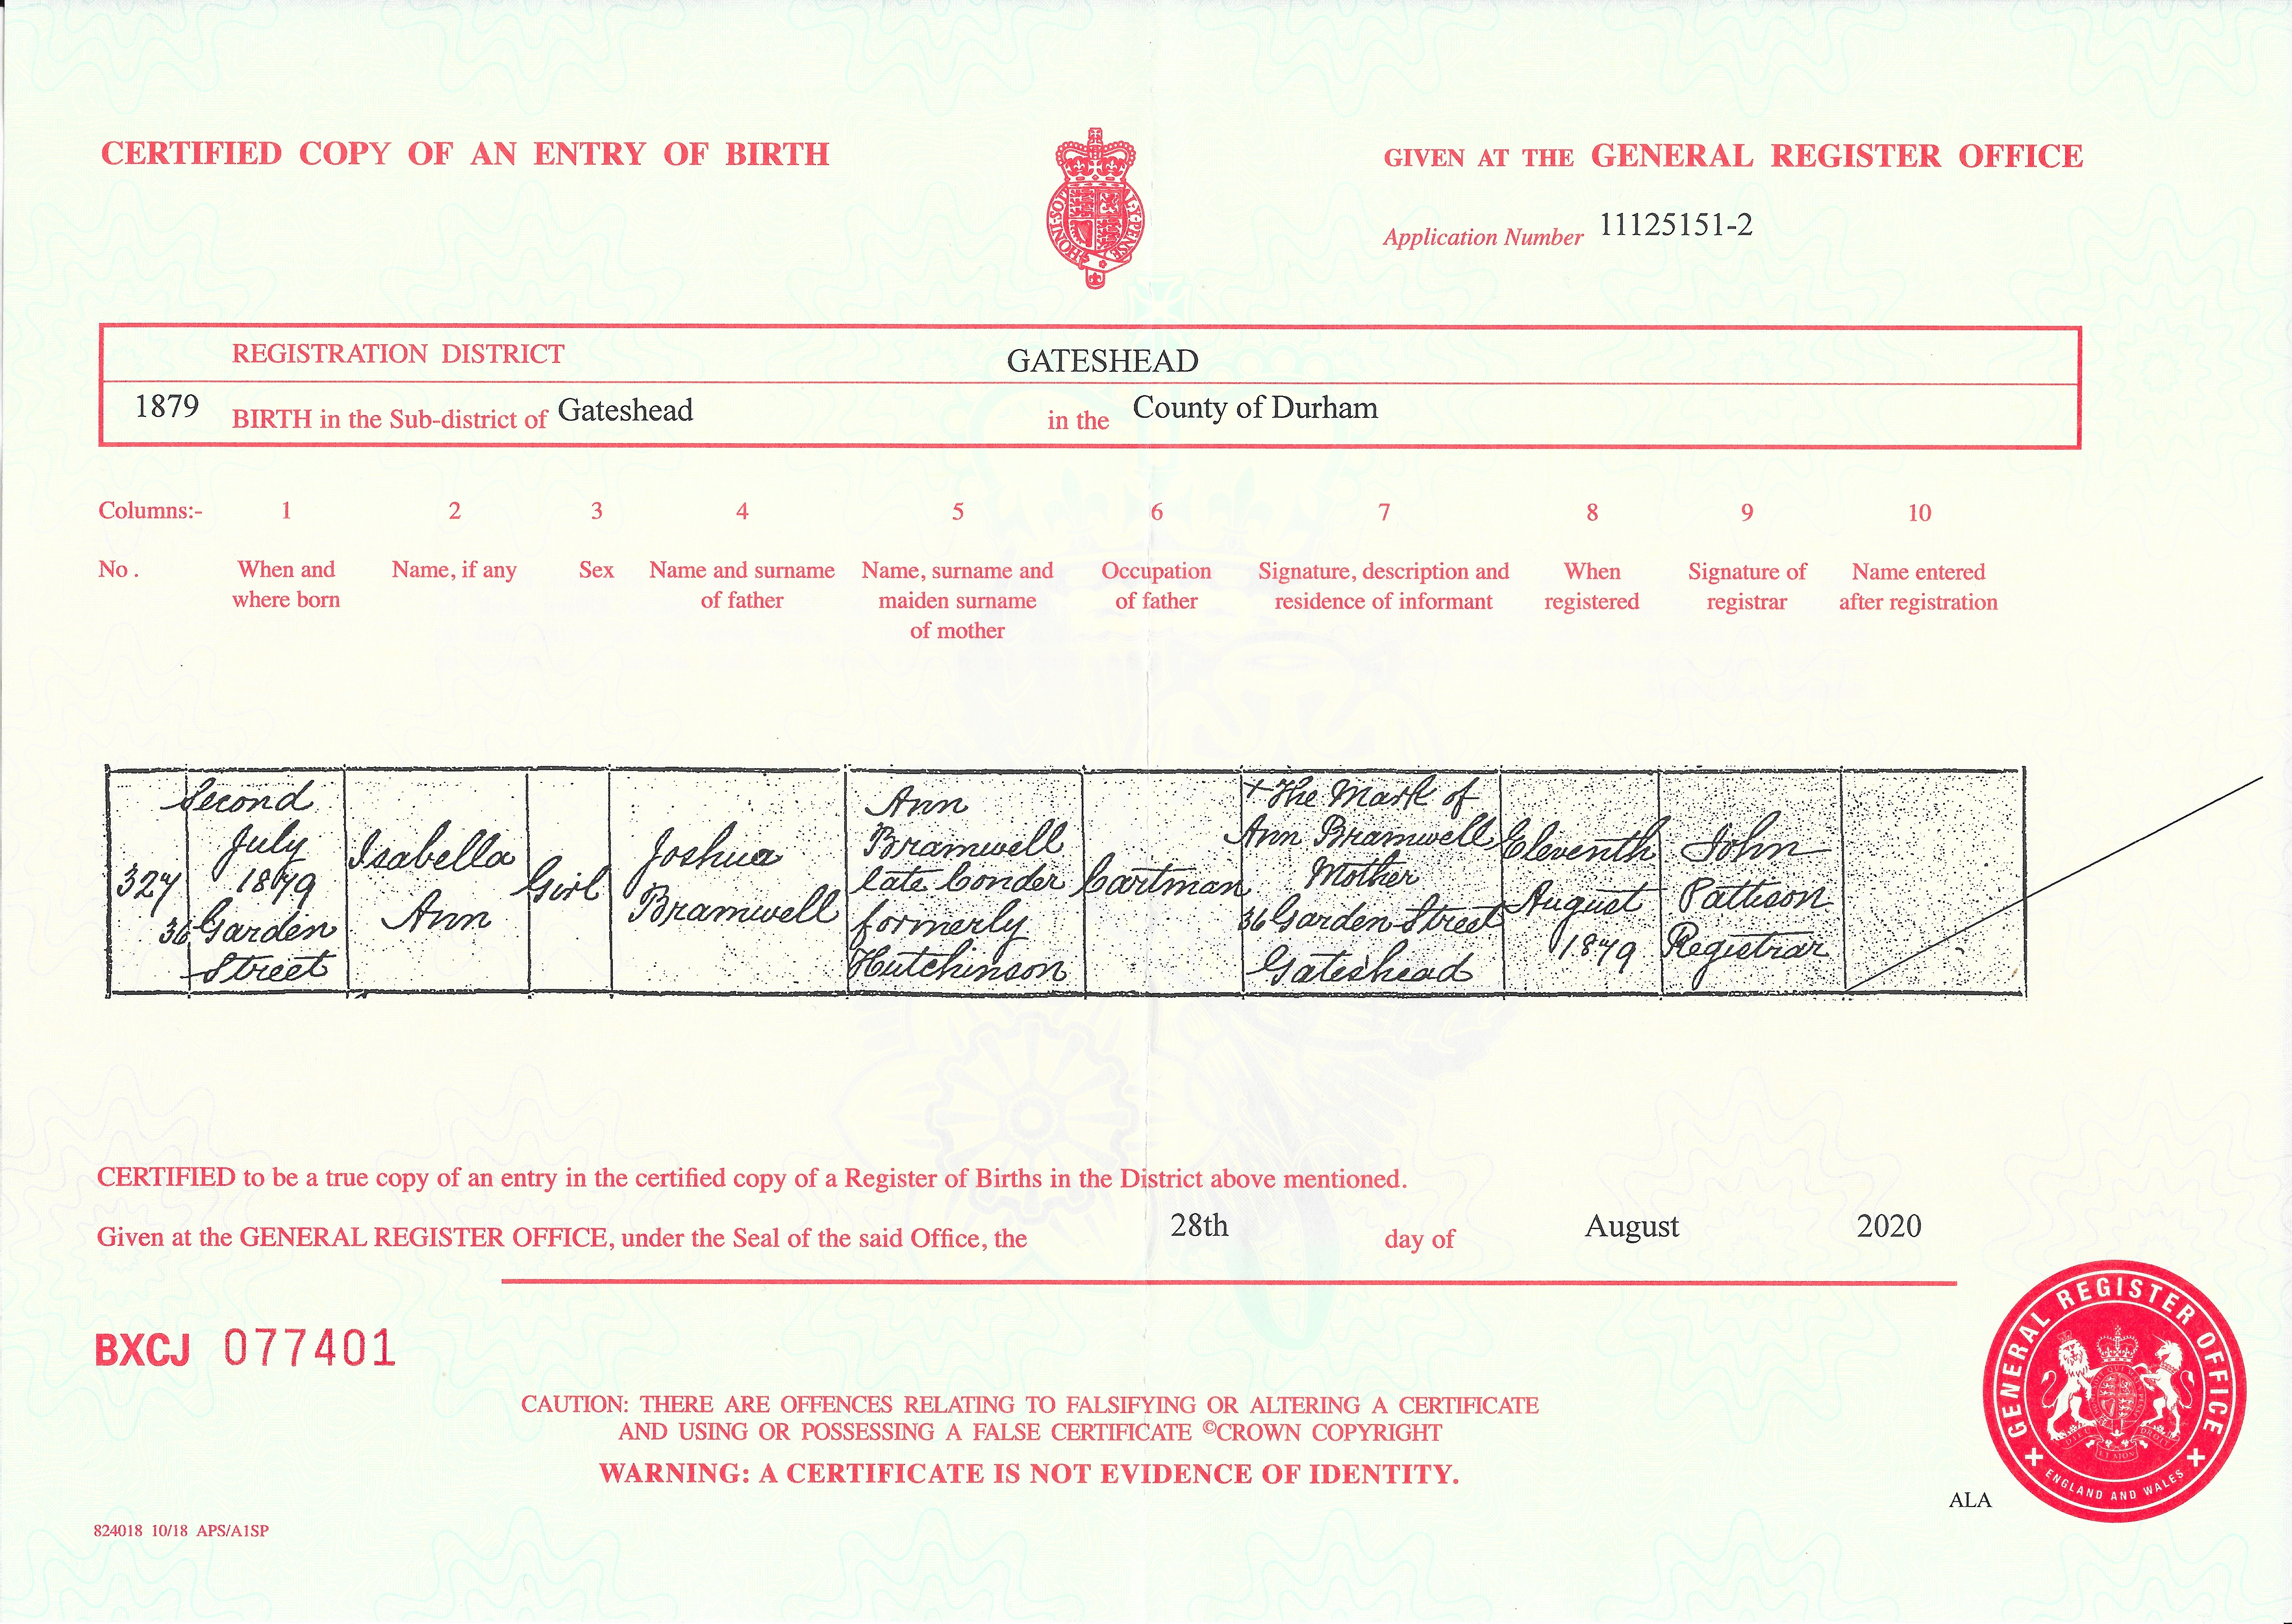 CERTIFIED COPY OF AN ENTRY OF BIRTH
GIVEN AT THE GENERAL REGISTER OFFICE
HONI·SOIT
MAL·Y·PENSE
Application Number 11125151-2
REGISTRATION DISTRICT GATESHEAD
1879 BIRTH in the Sub-district of Gateshead in the County of Durham
Columns:- 1 2 3 4 5 6 7 8 9 10
No.
When and
where born
Name, if any
Sex
Name and surname
of father
Name, surname and
maiden surname
of mother
Occupation
of father
Signature, description and
residence of informant
When
registered
Signature of
registrar
Name entered
after registration
327
Second
July
1879
36 Garden
Street
Isabella
Ann
Girl
Joshua
Bramwell
Ann
Bramwell
late Conder
formerly
Hutchinson
Cartman
X The Mark of
Ann Bramwell
Mother
36 Garden Street
Gateshead
Eleventh
August
1879
John
Pattison
Registrar
CERTIFIED to be a true copy of an entry in the certified copy of a Register of Births in the District above mentioned.
Given at the GENERAL REGISTER OFFICE, under the Seal of the said Office, the 28th day of August 2020
BXCJ 077401
CAUTION: THERE ARE OFFENCES RELATING TO FALSIFYING OR ALTERING A CERTIFICATE
AND USING OR POSSESSING A FALSE CERTIFICATE ©CROWN COPYRIGHT
WARNING: A CERTIFICATE IS NOT EVIDENCE OF IDENTITY.
GENERAL REGISTER OFFICE
ENGLAND AND WALES
ALA
824018 10/18 APS/A1SP